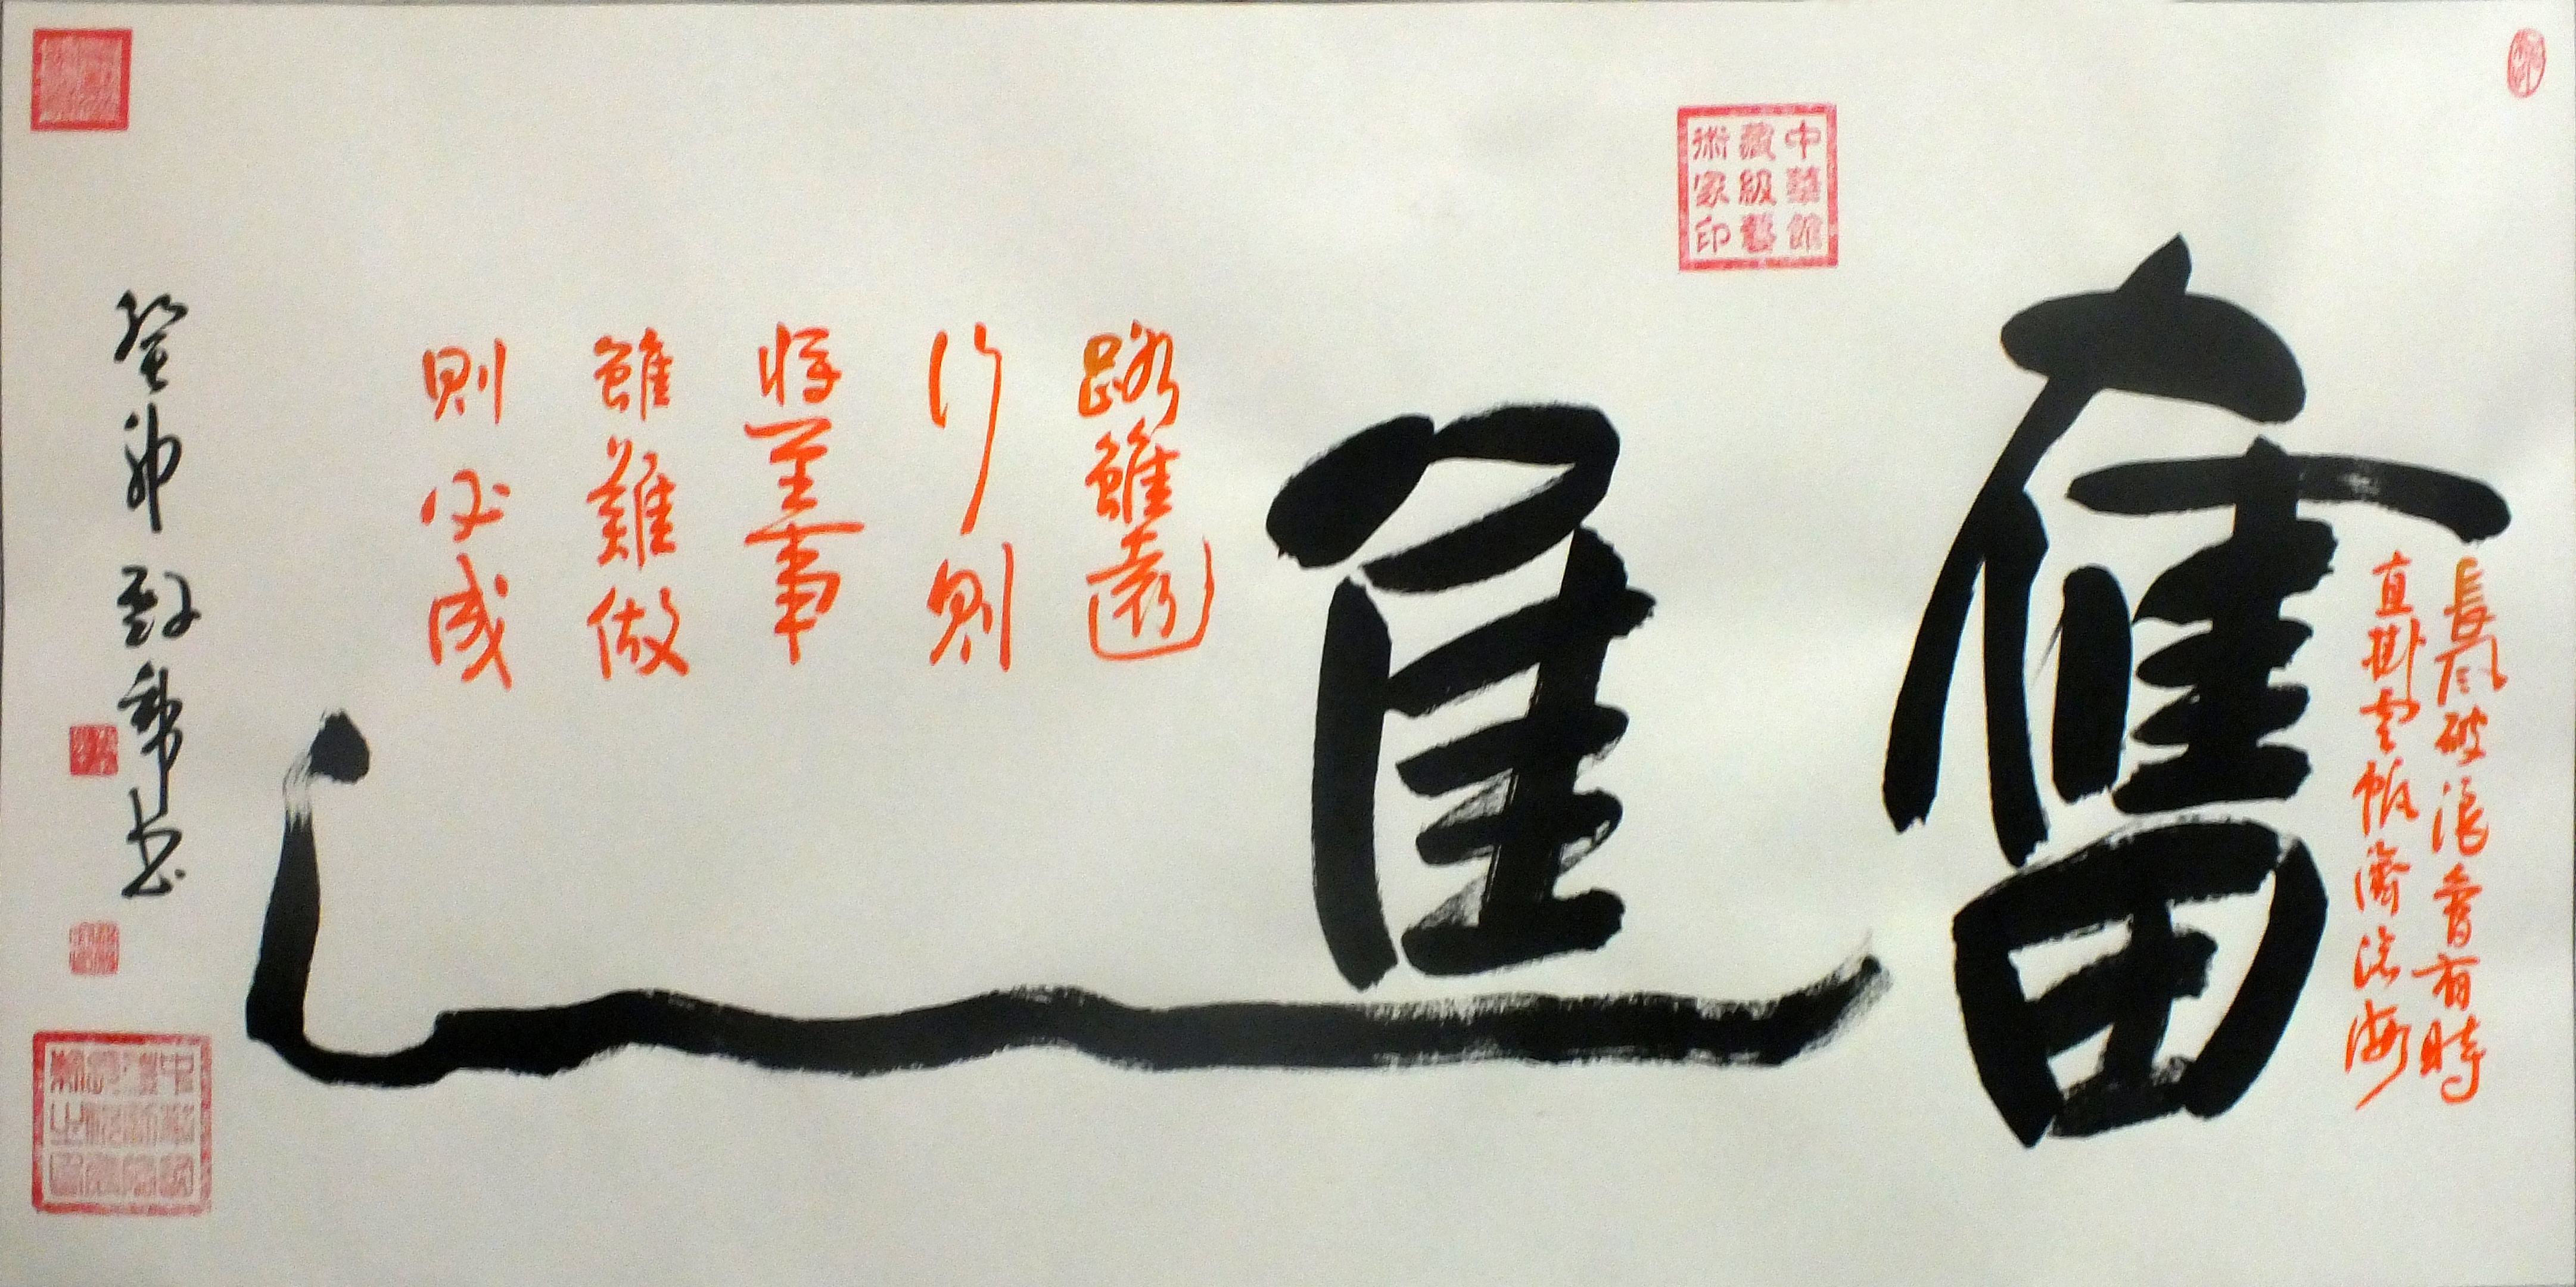 長風破浪會有時
直掛雲帆濟滄海
奮進
中華館
藏級藝
術家印
路雖遠
行則
將至事
雖難做
則必成
癸卯
书